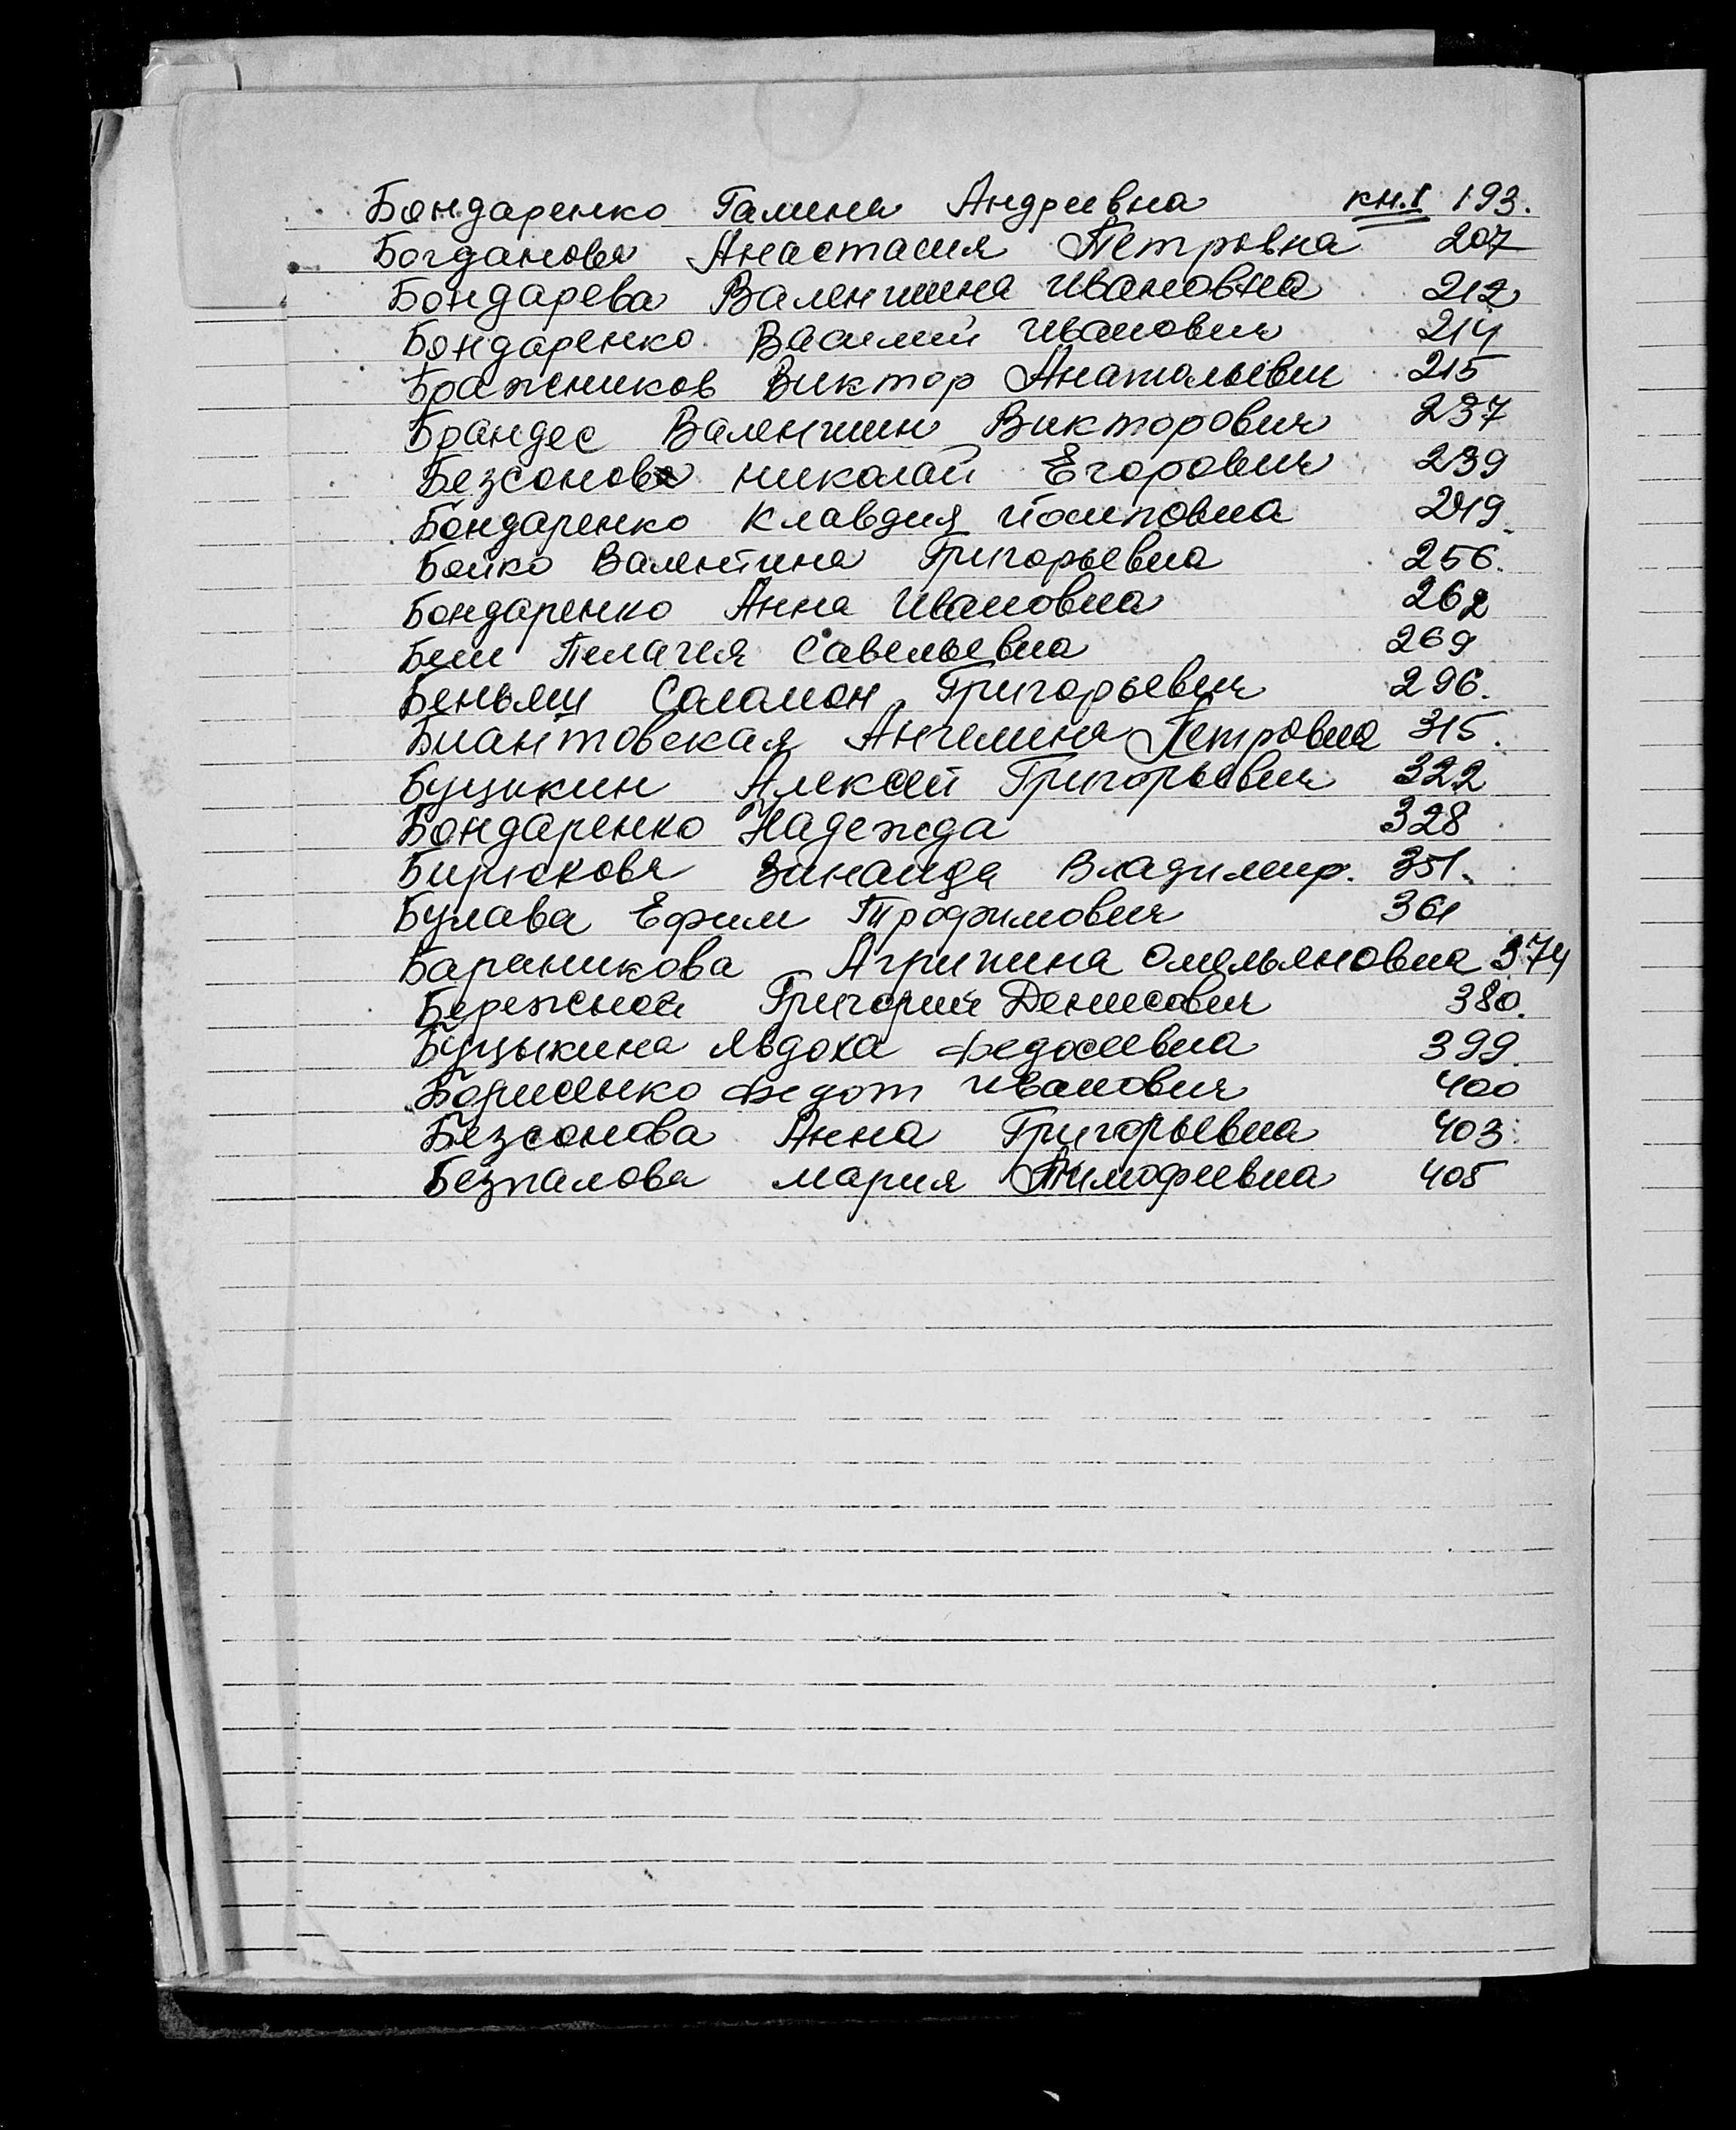 Бондаренко Галина Андреевна кн.I 193.
Богданова Анастасия Петровна 207
Бондарева Валентина Ивановна 212
Бондаренко Василий Иванович 214
Бражников Виктор Анатольевич 215
Брандес Валентин Викторович 237
Безсонов Николай Егорович 239
Бондаренко Клавдия Иосиповна 249.
Бойко Валентина Григорьевна 256.
Бондаренко Анна Ивановна 262
Беш Пелагея Савельевна 269
Беньяш Саламон Григорьевич 296.
Биантовская Ангелина Петровна 315.
Буцикин Алексей Григорьевич 322
Бондаренко Надежда 328
Бирюкова Зинаида Владимир. 351.
Булава Ефим Трофимович 361
Бараникова Агрипина Омельяновна 374
Бережной Григорий Денисович 380.
Буцыкина Явдоха Федосеевна 399.
Борисенко Федот Иванович 400
Безсонова Анна Григорьевна 403.
Безпалова Мария Тимофеевна 405